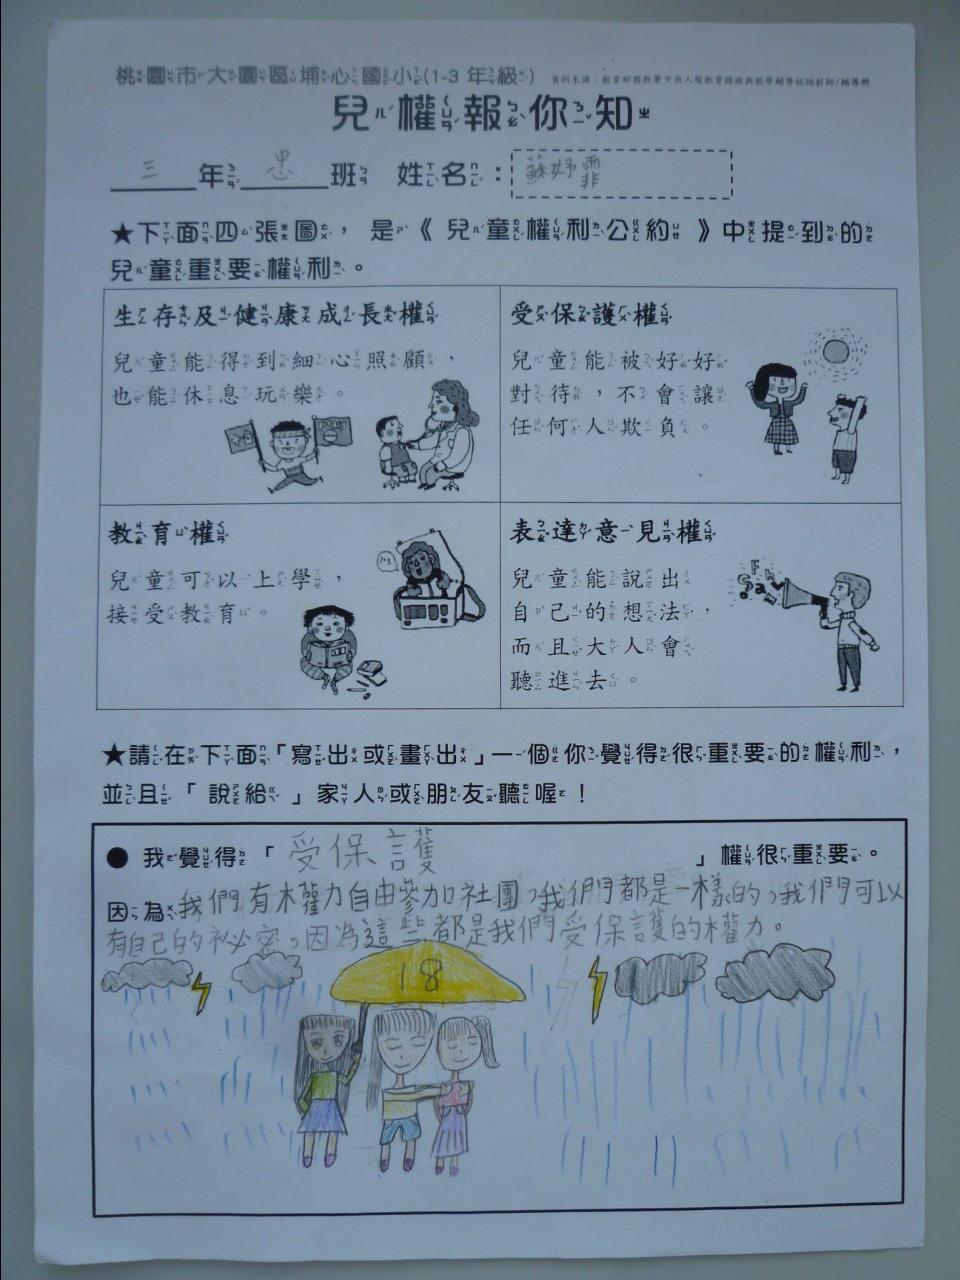 桃園市大園區埔心國小(1-3 年級)
資料來源：教育部國教署中央人權教育課程與教學輔導諮詢教師/輔導群
兒權報你知
三年忠班 姓名：蘇妤霏
★下面四張圖，是《兒童權利公約》中提到的
兒童重要權利。
生存及健康成長權
兒童能得到細心照顧，
也能休息玩樂。
受保護權
兒童能被好好
對待，不會讓
任何人欺負。
教育權
兒童可以上學，
接受教育。
表達意見權
兒童能說出
自己的想法，
而且大人會
聽進去。
★請在下面「寫出或畫出」一個你覺得很重要的權利，
並且「說給」家人或朋友聽喔！
● 我覺得「受保護」權很重要。
因為我們有木權力自由參加社團，我們都是一樣的，我們可以
有自己的祕密，因為這些都是我們受保護的權力。
18